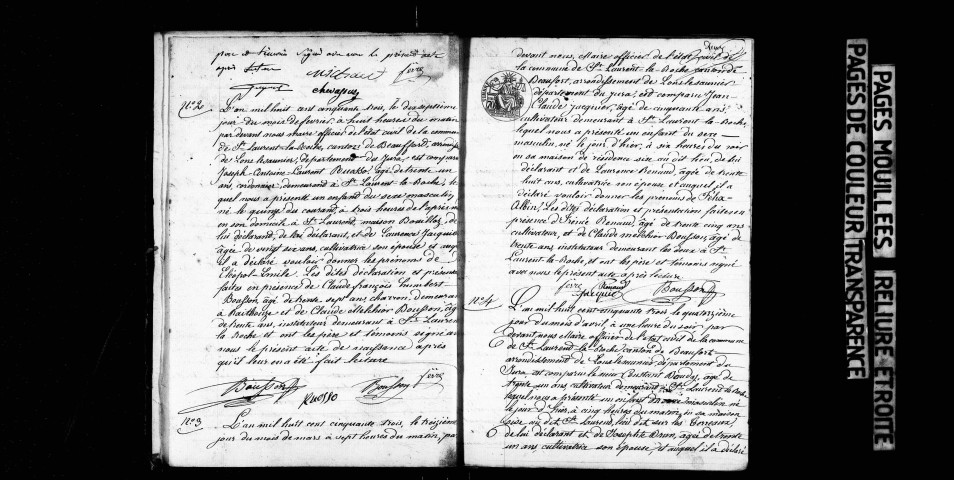 père et témoins signé avec nous le présent acte
après lecture
N°2
L'an mil huit cent cinquante trois, le dix septième
jour du mois de février, à huit heures du matin
par devant nous maire officier de l'état civil de la commune
de St Laurent-la-Roche, canton de Beauffort, arrond
de Lons-le-saunier, département du Jura, est comparu
Joseph Antoine Laurent Ruosso, âgé de trente un
ans, cordonnier, demeurant à St Laurent-la-Roche, le
quel nous a présenté un enfant du sexe masculin,
né le quinze du courant, à trois heures de l'après midi
en son domicile à St Laurent, maison Bouillet, de
lui déclarant, et de Laurence Jacquier
âgée de vingt six ans, cultivatrice son épouse et auquel
il a déclaré vouloir donner les prénoms de
Léopol-Emile. Les dites déclaration et présentation
faites en présence de Claude françois humbert
Bousson, âgé de trente sept ans charron, demeurant
à et de Claude Melchior Bousson, âgé
de trente ans, instituteur demeurant à St Laurent
la Roche et ont les père et témoins signé avec
nous le présent acte de naissance après
qu'il leur en a été fait lecture
Bousson Ruosso Bousson
N°3
L'an mil huit cent cinquante trois, le treizième
jour du mois de mars à sept heures du matin, par
devant nous, Maire officier de l'état civil de
la commune de St Laurent-la-Roche canton de
Beaufort, arrondissement de Lons le saunier
département du jura, est comparu Jean-
Claude jacquier, âgé de cinquante ans,
cultivateur demeurant à St Laurent-la-Roche,
lequel nous a présenté un enfant du sexe
masculin, né le jour d'hier, à six heures du soir
en sa maison de résidence sise au dit lieu, de lui
déclarant et de Laurence Renaud, âgée de trente
huit ans, cultivatrice son épouse et auquel il a
déclaré vouloir donner les prénoms de Félix-
Albin. Les dites déclaration et présentation faites en
présence d'Irénée Renaud, âgé de trente cinq ans
cultivateur, et de Claude melchior Bousson, âgé de
trente ans, instituteur demeurant les deux à St
Laurent-la-Roche, et ont les père et témoins signé
avec nous le présent acte après lecture
Jacquier Renaud Bousson
N°4
L'an mil huit cent cinquante trois le quatorzième
jour du mois d'avril, à une heure du soir par
devant nous Maire officier de l'état civil de la commune
de St Laurent-la-Roche canton de Beaufort
arrondissement de Lons le saunier département du
Jura, est comparu le sieur Constant Boudy, âgé de
trente un ans, cultivateur demeurant à St Laurent-la-Roche
lequel nous a présenté un enfant du sexe masculin né
le jour d'hier à cinq heures du matin, en sa maison
sise au dit St Laurent, lieu dit sur les Terreaux,
de lui déclarant et de Josephte Brun, âgée de trente
un ans, cultivatrice son épouse, et auquel il a déclaré
PAGES MOUILLEES RELIURE ETROITE
PAGES DE COULEUR TRANSPARENCE